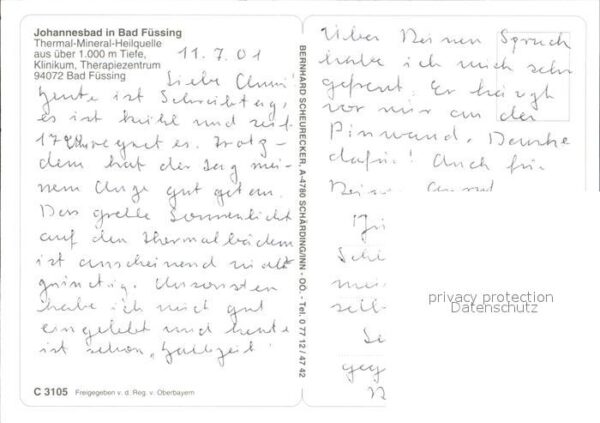 Johannesbad in Bad Füssing
Thermal-Mineral-Heilquelle
aus über 1.000 m Tiefe,
Klinikum, Therapiezentrum
94072 Bad Füssing
11.7.01
Liebe
heute ist Schreibtag,
es ist kühl und seit
17 Uhr regnet es. Trotz-
dem hat der Tag mei-
nem Auge gut getan.
Das grelle Sonnenlicht
auf den Thermalbädern
ist anscheinend nicht
günstig. Ansonsten
habe ich mich gut
eingelebt und heute
ist schon „Halbzeit".
C 3105 Freigegeben v. d. Reg. v. Oberbayern
BERNHARD SCHEURECKER, A-4780 SCHÄRDING/INN - OÖ. - Tel. 0 77 12 / 47 42
Über Deinen Spruch
habe ich mich sehr
gefreut. Er hängt
vor mir an der
Pinwand. Danke
dafür! Auch für
Deine
privacy protection
Datenschutz